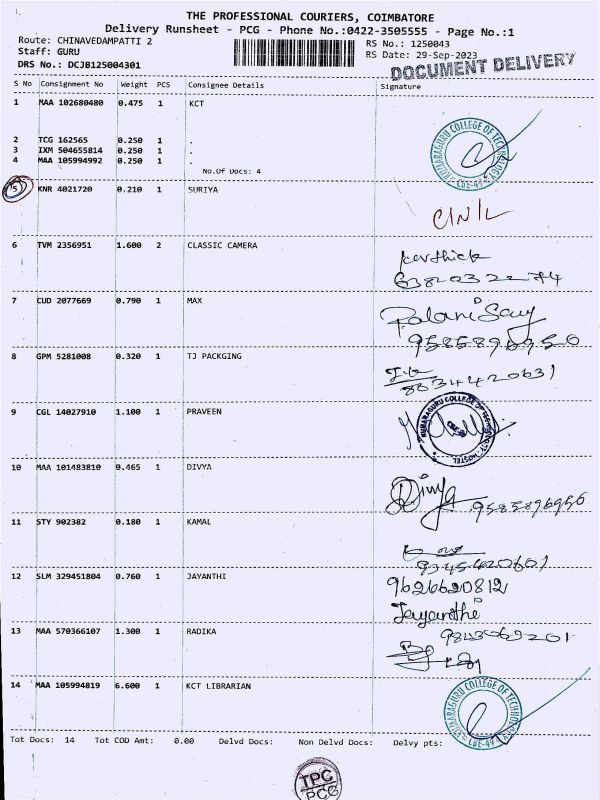 THE PROFESSIONAL COURIERS, COIMBATORE
Delivery Runsheet - PCG - Phone No.:0422-3505555 - Page No.:1
Route: CHINAVEDAMPATTI 2
RS No.: 1250043
Staff: GURU
RS Date: 29-Sep-2023
DRS No.: DCJB125004301
DOCUMENT DELIVERY
S No Consignment No Weight PCS Consignee Details Signature
1 MAA 102680480 0.475 1 KCT
2 TCG 162565 0.250 1 .
3 IXM 504655814 0.250 1 .
4 MAA 105994992 0.250 1 .
No.Of Docs: 4
KUMARAGURU COLLEGE OF TECHNOLOGY
CBE-49
5 KNR 4021720 0.210 1 SURIYA
C/N/L
6 TVM 2356951 1.600 2 CLASSIC CAMERA
karthick
7 CUD 2077669 0.790 1 MAX
Palani Samy
8 GPM 5281008 0.320 1 TJ PACKGING
8834420631
9 CGL 14027910 1.100 1 PRAVEEN
KUMARAGURU COLLEGE OF TECHNOLOGY - HOSTEL
10 MAA 101483810 0.465 1 DIVYA
Divya 9585896956
11 STY 902382 0.180 1 KAMAL
9345420601
12 SLM 329451804 0.760 1 JAYANTHI
9626620812
Jayanthi
13 MAA 570366107 1.300 1 RADIKA
14 MAA 105994819 6.600 1 KCT LIBRARIAN
KUMARAGURU COLLEGE OF TECHNOLOGY
CBE-49
Tot Docs: 14 Tot COD Amt: 0.00 Delvd Docs: Non Delvd Docs: Delvy pts:
TPC
PCG